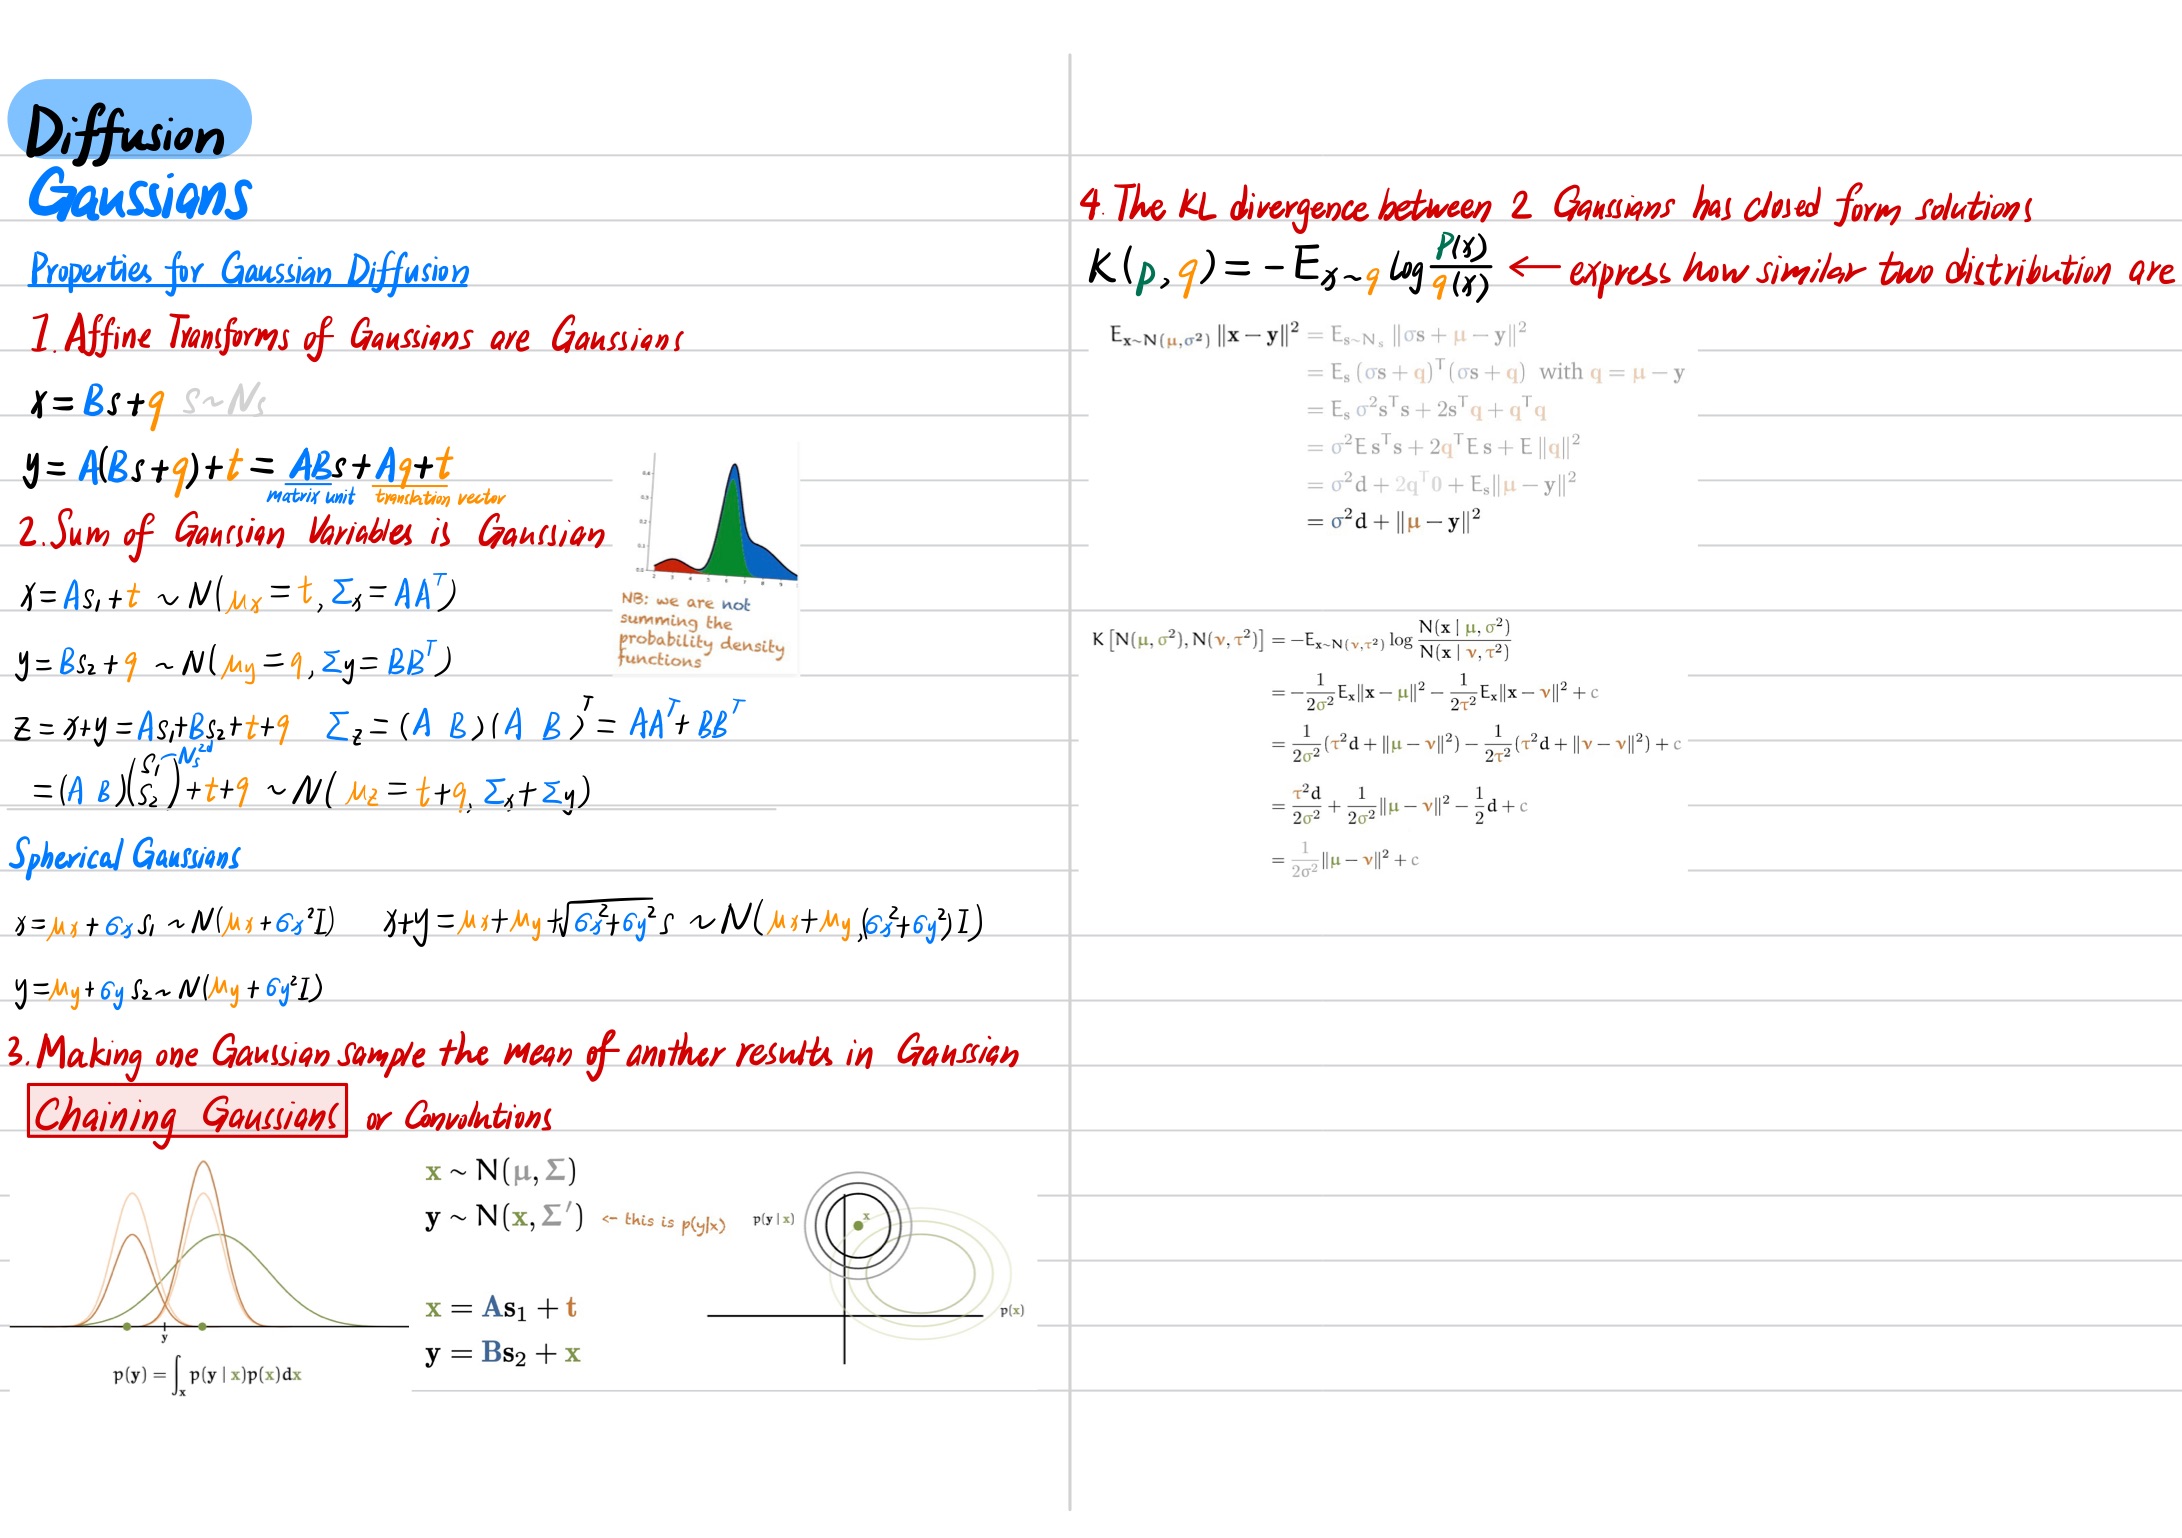 Diffusion
Gaussians
Properties for Gaussian Diffusion
1. Affine Transforms of Gaussians are Gaussians
x = Bs + q s ~ Ns
y = A(Bs + q) + t = ABs + Aq + t
matrix unit translation vector
2. Sum of Gaussian Variables is Gaussian
x = As₁ + t ~ N(μx = t, Σx = AAᵀ)
y = Bs₂ + q ~ N(μy = q, Σy = BBᵀ)
z = x+y = As₁+Bs₂+t+q Σz = (A B)(A B)ᵀ = AAᵀ + BBᵀ
= (A B)(s₁ s₂) + t+q ~ N(μz = t+q, Σx + Σy)
~Ns²ᵈ
0.4
0.3
0.2
0.1
0.0
2 3 4 5 6 7 8 9
NB: we are not
summing the
probability density
functions
Spherical Gaussians
x = μx + σx s₁ ~ N(μx + σx²I) x+y = μx + μy + √(σx²+σy²) s ~ N(μx+μy, (σx²+σy²)I)
y = μy + σy s₂ ~ N(μy + σy²I)
3. Making one Gaussian sample the mean of another results in Gaussian
Chaining Gaussians or Convolutions
y
p(y) = ∫ₓ p(y | x)p(x)dx
x ~ N(μ, Σ)
y ~ N(x, Σ′) <- this is p(y|x)
x = As₁ + t
y = Bs₂ + x
p(y | x)
x
p(x)
4. The KL divergence between 2 Gaussians has closed form solutions
K(p, q) = − E x~q log p(x)/q(x) ← express how similar two distribution are
E x∼N(μ,σ²) ‖x − y‖² = E s∼Ns ‖σs + μ − y‖²
= Es (σs + q)ᵀ(σs + q) with q = μ − y
= Es σ²sᵀs + 2sᵀq + qᵀq
= σ²E sᵀs + 2qᵀE s + E ‖q‖²
= σ²d + 2qᵀ0 + Es‖μ − y‖²
= σ²d + ‖μ − y‖²
K [N(μ, σ²), N(ν, τ²)] = −E x∼N(ν,τ²) log N(x | μ, σ²)/N(x | ν, τ²)
= −1/2σ² Ex‖x − μ‖² − 1/2τ² Ex‖x − ν‖² + c
= 1/2σ² (τ²d + ‖μ − ν‖²) − 1/2τ² (τ²d + ‖ν − ν‖²) + c
= τ²d/2σ² + 1/2σ² ‖μ − ν‖² − 1/2 d + c
= 1/2σ² ‖μ − ν‖² + c